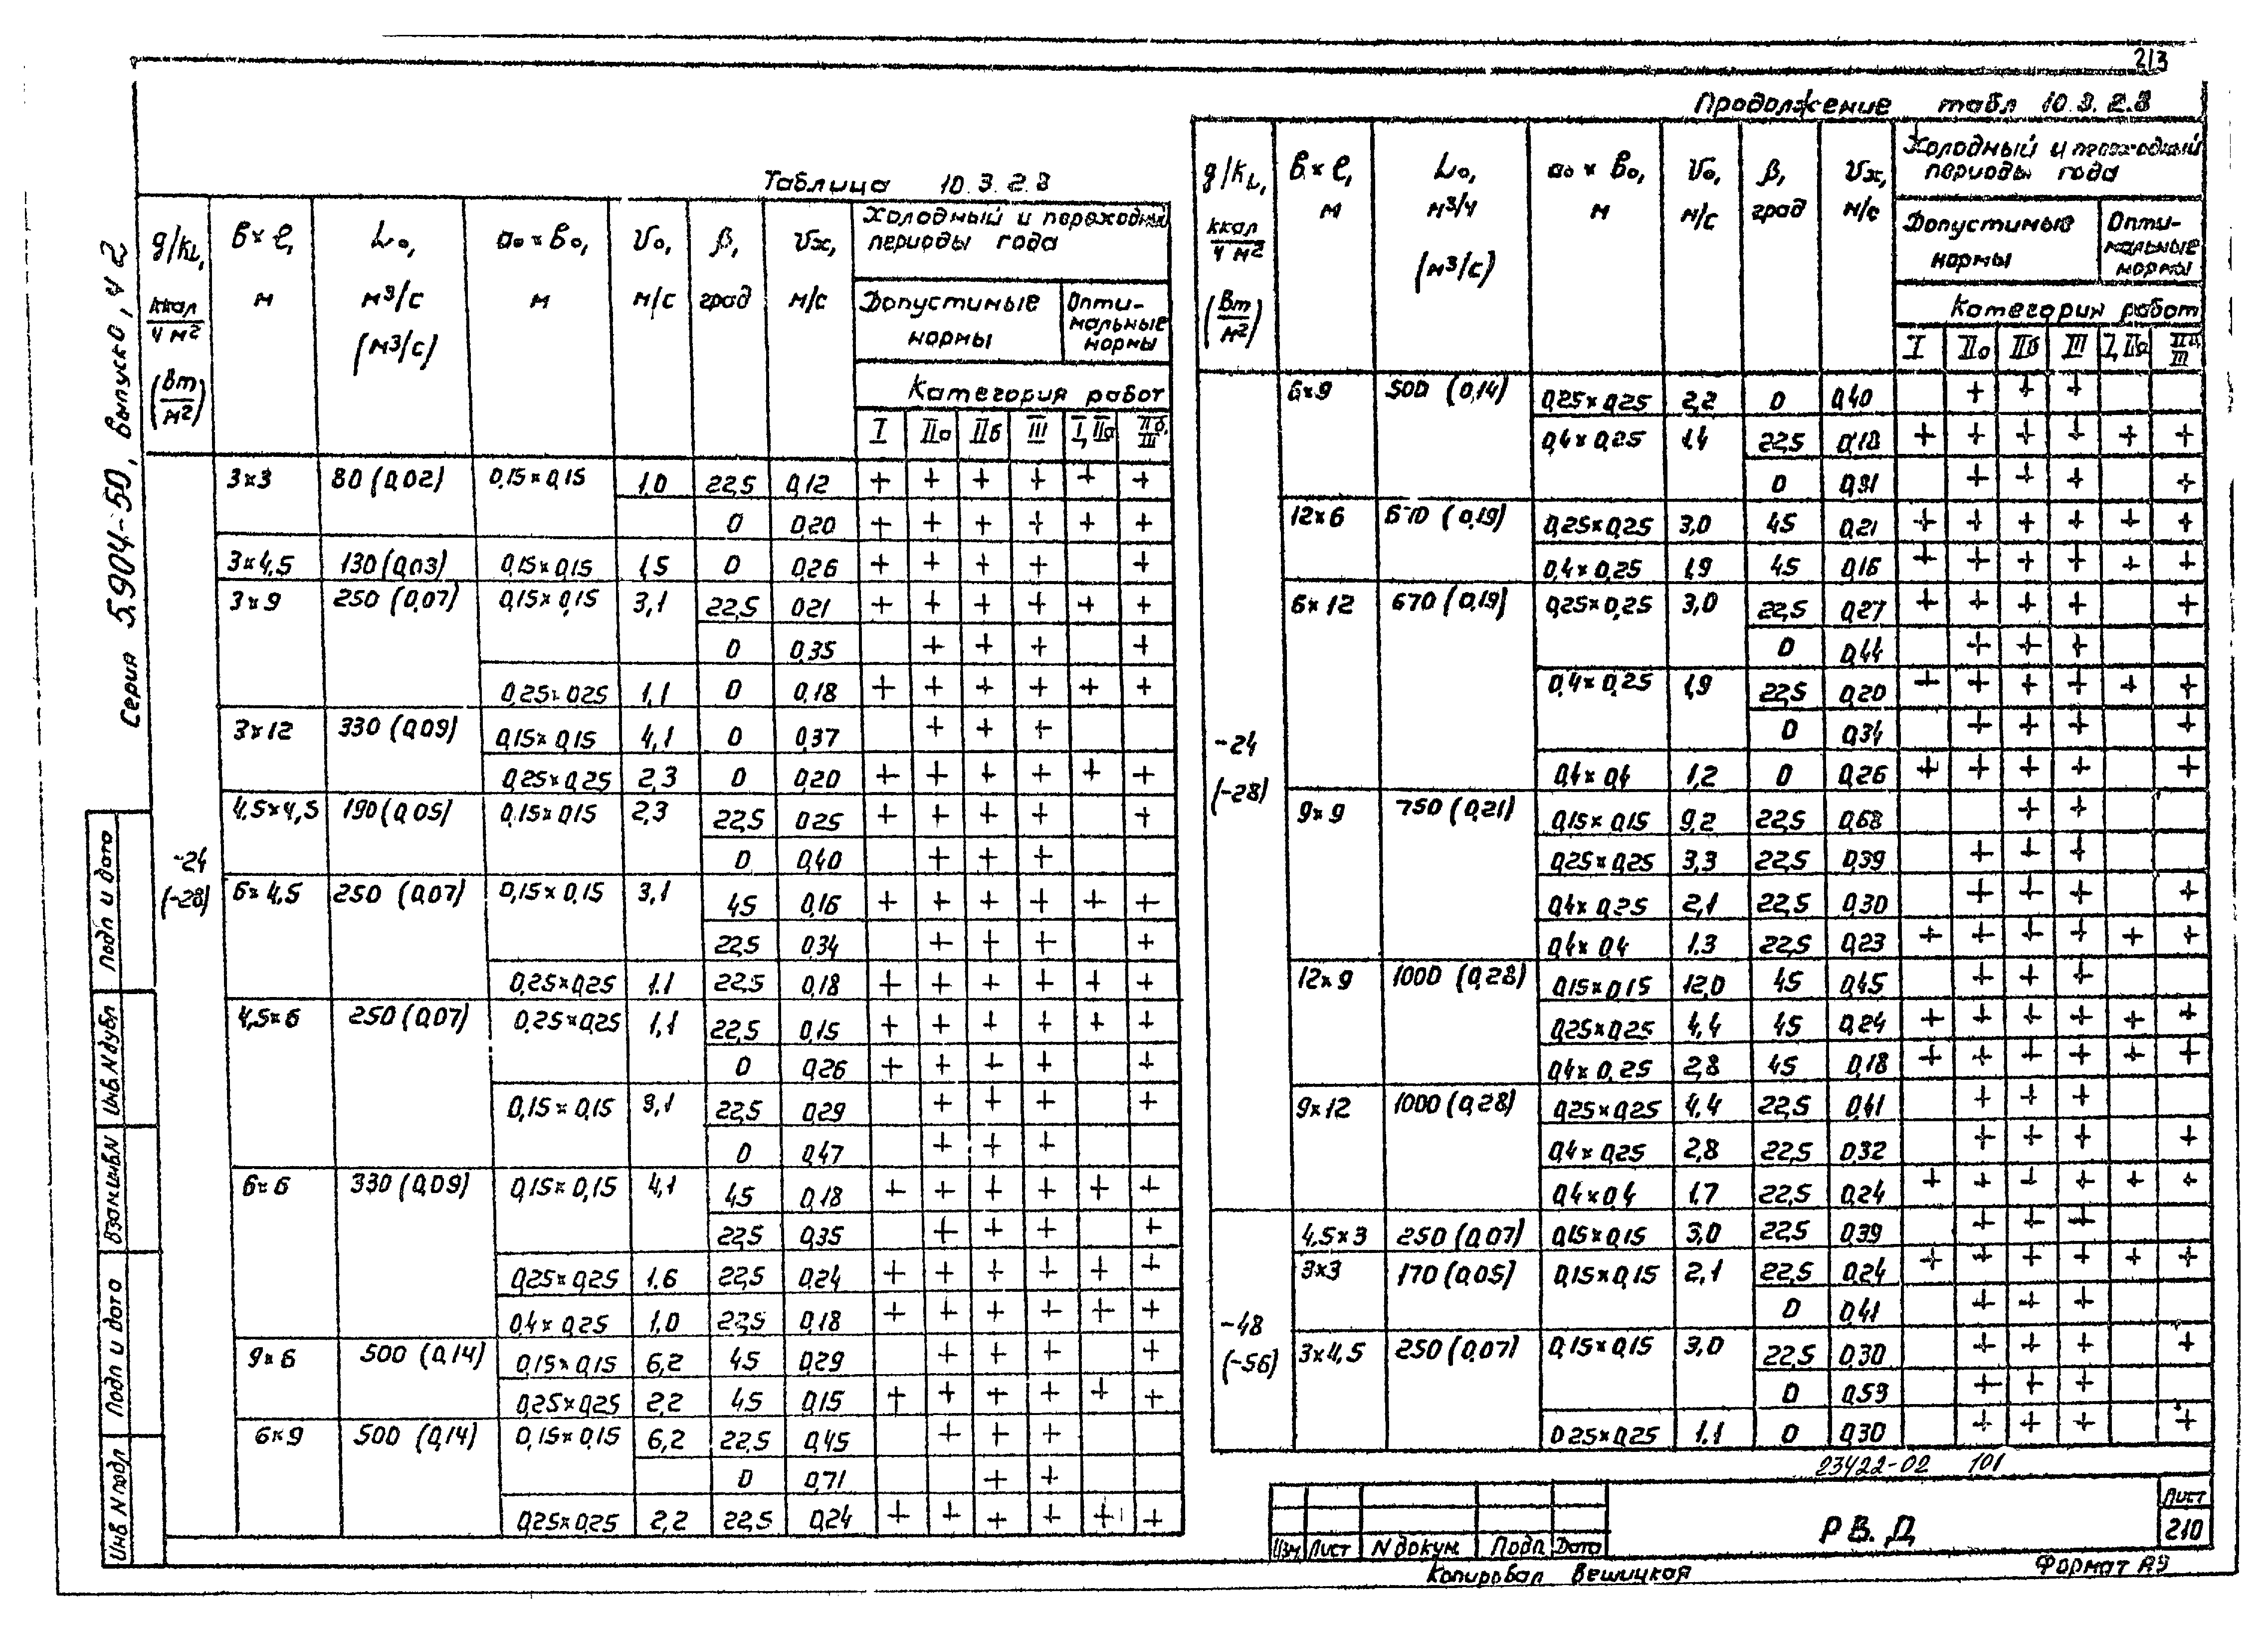 213
Серия 5.904-50, Выпуск 0, ч 2
Таблица 10.3.2.8
g/kL, ккал/ч м2 (Вт/м2) | в×ℓ, м | L0, м3/с (м3/с) | a0×b0, м | V0, м/с | β, град | Vx, м/с | Холодный и переходный периоды года
Допустимые нормы | Опти-мальные нормы
Категория работ
I | IIа | IIб | III | I, IIа | IIб, III
-24 (-28)
3×3 | 80 (0,02) | 0,15×0,15 | 1,0 | 22,5 | 0,12 | + | + | + | + | + | +
0 | 0,20 | + | + | + | + | + | +
3×4,5 | 130 (0,03) | 0,15×0,15 | 1,5 | 0 | 0,26 | + | + | + | + | | +
3×9 | 250 (0,07) | 0,15×0,15 | 3,1 | 22,5 | 0,21 | + | + | + | + | + | +
0 | 0,35 | | + | + | + | | +
0,25×0,25 | 1,1 | 0 | 0,18 | + | + | + | + | + | +
3×12 | 330 (0,09) | 0,15×0,15 | 4,1 | 0 | 0,37 | | + | + | + | |
0,25×0,25 | 2,3 | 0 | 0,20 | + | + | + | + | + | +
4,5×4,5 | 190 (0,05) | 0,15×0,15 | 2,3 | 22,5 | 0,25 | + | + | + | + | | +
0 | 0,40 | | + | + | + | |
6×4,5 | 250 (0,07) | 0,15×0,15 | 3,1 | 45 | 0,16 | + | + | + | + | + | +
22,5 | 0,34 | | + | + | + | | +
0,25×0,25 | 1.1 | 22,5 | 0,18 | + | + | + | + | + | +
4,5×6 | 250 (0,07) | 0,25×0,25 | 1,1 | 22,5 | 0,15 | + | + | + | + | + | +
0 | 0,26 | + | + | + | + | | +
0,15×0,15 | 3,1 | 22,5 | 0,29 | | + | + | + | | +
0 | 0,47 | | + | + | + | |
6×6 | 330 (0,09) | 0,15×0,15 | 4,1 | 45 | 0,18 | + | + | + | + | + | +
22,5 | 0,35 | | + | + | + | | +
0,25×0,25 | 1.6 | 22,5 | 0,24 | + | + | + | + | + | +
0,4×0,25 | 1,0 | 22,5 | 0,18 | + | + | + | + | + | +
9×6 | 500 (0,14) | 0,15×0,15 | 6,2 | 45 | 0,29 | | + | + | + | | +
0,25×0,25 | 2,2 | 45 | 0,15 | + | + | + | + | + | +
6×9 | 500 (0,14) | 0,15×0,15 | 6,2 | 22,5 | 0,45 | | + | + | + | |
0 | 0,71 | | | + | + | |
0,25×0,25 | 2,2 | 22,5 | 0,24 | + | + | + | + | + | +
Продолжение табл 10.3.2.8
g/kL, ккал/ч м2 (Вт/м2) | в×ℓ, м | L0, м3/ч (м3/с) | a0×b0, м | V0, м/с | β, град | Vx, м/с | Холодный и переходный периоды года
Допустимые нормы | Опти-мальные нормы
Категория работ
I | IIа | IIб | III | I, IIа | IIб, III
-24 (-28)
6×9 | 500 (0,14) | 0,25×0,25 | 2,2 | 0 | 0,40 | | + | + | + | |
0,4×0,25 | 1,4 | 22,5 | 0,18 | + | + | + | + | + | +
0 | 0,31 | | + | + | + | | +
12×6 | 670 (0,19) | 0,25×0,25 | 3,0 | 45 | 0,21 | + | + | + | + | + | +
0,4×0,25 | 1,9 | 45 | 0,16 | + | + | + | + | + | +
6×12 | 670 (0,19) | 0,25×0,25 | 3,0 | 22,5 | 0,27 | + | + | + | + | | +
0 | 0,44 | | + | + | + | |
0,4×0,25 | 1,9 | 22,5 | 0,20 | + | + | + | + | + | +
0 | 0,34 | | + | + | + | | +
0,4×0,4 | 1,2 | 0 | 0,26 | + | + | + | + | | +
9×9 | 750 (0,21) | 0,15×0,15 | 9,2 | 22,5 | 0,68 | | | + | + | |
0,25×0,25 | 3,3 | 22,5 | 0,39 | | + | + | + | |
0,4×0,25 | 2,1 | 22,5 | 0,30 | | + | + | + | | +
0,4×0,4 | 1.3 | 22,5 | 0,23 | + | + | + | + | + | +
12×9 | 1000 (0,28) | 0,15×0,15 | 12,0 | 45 | 0,45 | | + | + | + | |
0,25×0,25 | 4,4 | 45 | 0,24 | + | + | + | + | + | +
0,4×0,25 | 2,8 | 45 | 0,18 | + | + | + | + | + | +
9×12 | 1000 (0,28) | 0,25×0,25 | 4.4 | 22,5 | 0,41 | | + | + | + | |
0,4×0,25 | 2,8 | 22,5 | 0,32 | | + | + | + | | +
0,4×0,4 | 1,7 | 22,5 | 0,24 | + | + | + | + | + | +
-48 (-56)
4,5×3 | 250 (0,07) | 0,15×0,15 | 3,0 | 22,5 | 0,39 | | + | + | + | |
3×3 | 170 (0,05) | 0,15×0,15 | 2,1 | 22,5 | 0,24 | + | + | + | + | + | +
0 | 0,41 | | + | + | + | |
3×4,5 | 250 (0,07) | 0,15×0,15 | 3,0 | 22,5 | 0,30 | | + | + | + | | +
0 | 0,53 | | + | + | + | |
0.25×0,25 | 1.1 | 0 | 0,30 | | + | + | + | | +
23422-02 101
Изм Лист N докум Подп Дата
РВ.Д
Лист
210
Копировал Вешицкая
Формат А3
Подп и дата
Инв N дубл
Взам инв N
Подп и дата
Инв N подл